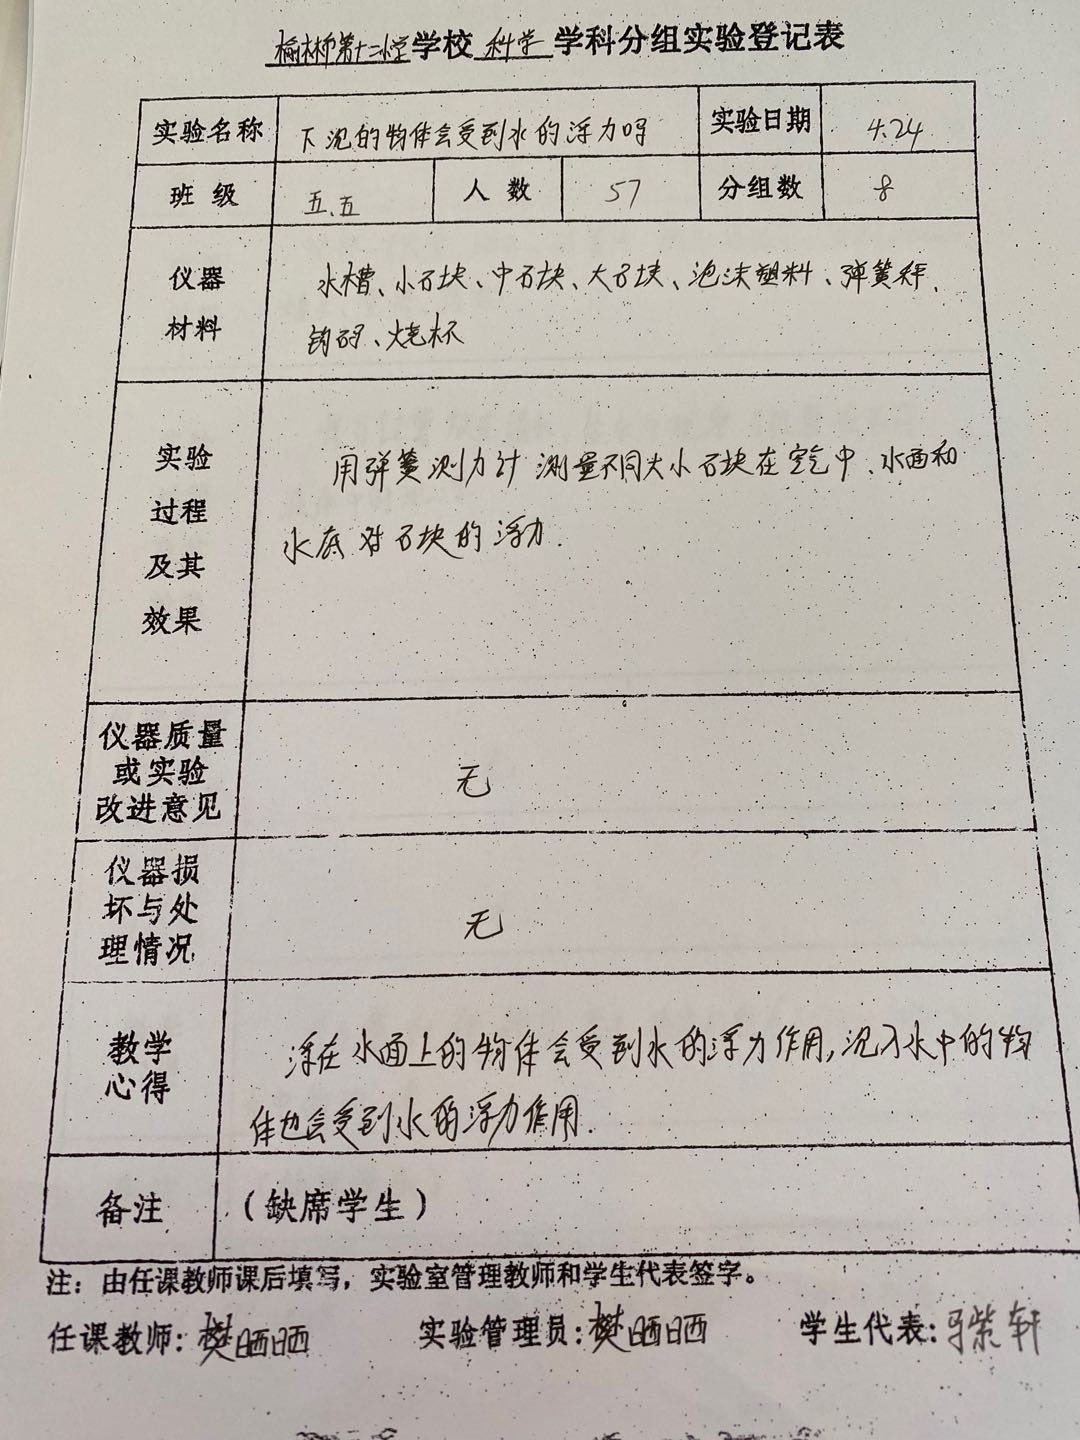 榆林市第十二小学学校 科学 学科分组实验登记表
实验名称 下沉的物体会受到水的浮力吗 实验日期 4.24
班级 五.五 人数 57 分组数 8
仪器材料 水槽、小石块、中石块、大石块、泡沫塑料、弹簧秤、
钩码、烧杯
实验
过程
及其
效果
用弹簧测力计测量不同大小石块在空气中、水面和
水底对石块的浮力.
仪器质量
或实验
改进意见
无
仪器损
坏与处
理情况
无
教学
心得
浮在水面上的物体会受到水的浮力作用,沉入水中的物
体也会受到水的浮力作用.
备注 (缺席学生)
注：由任课教师课后填写，实验室管理教师和学生代表签字。
任课教师:樊晒晒 实验管理员:樊晒晒 学生代表:紫轩